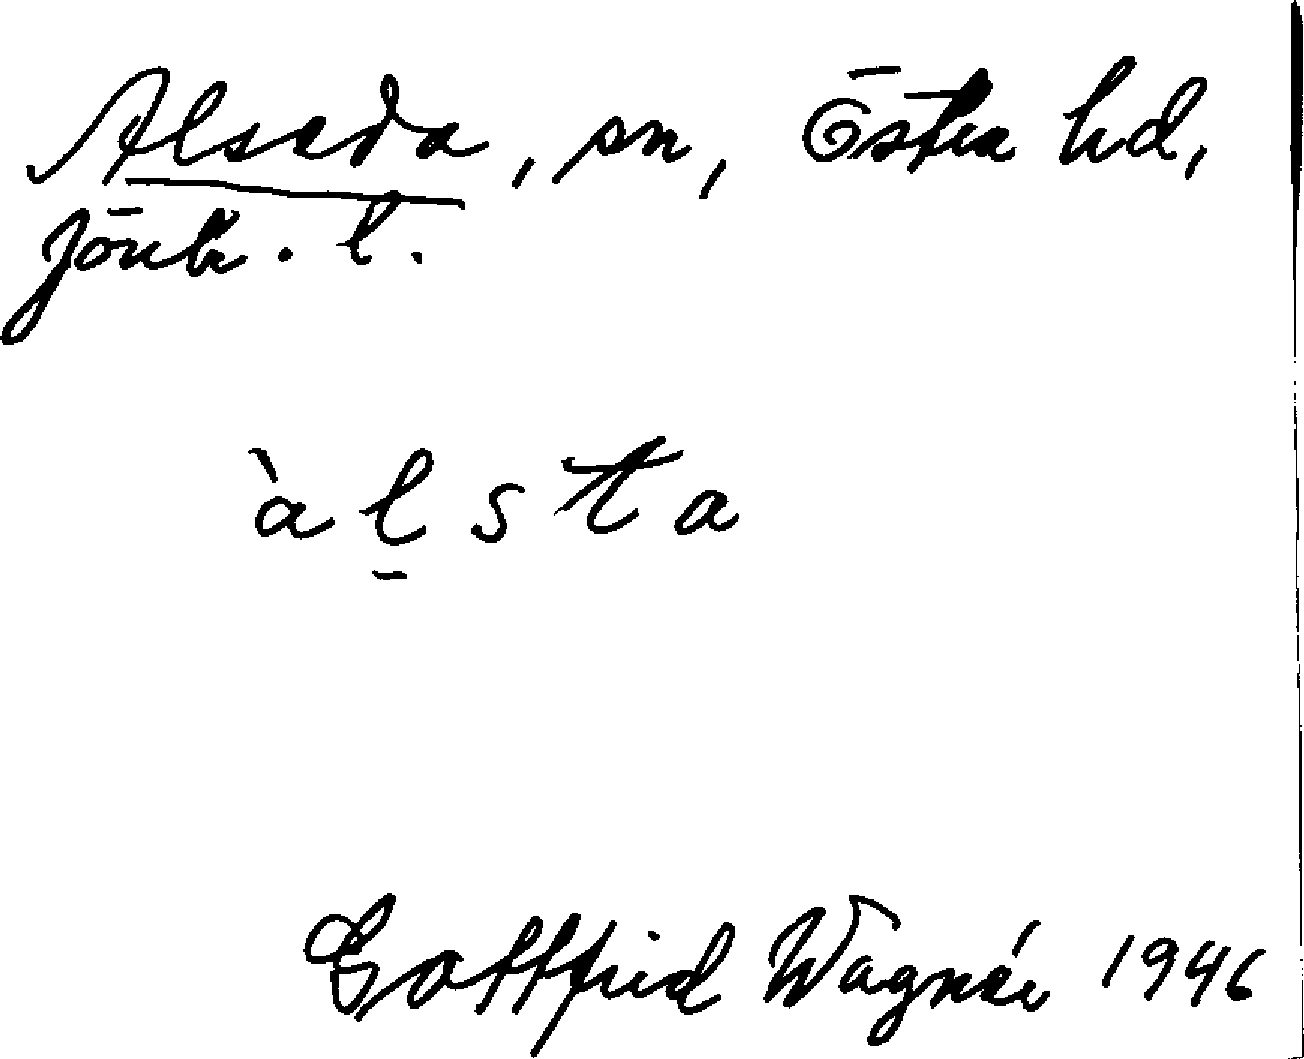 Alseda, sn, Östra hd,
Jönk. l.
àl̠sta
Gottfrid Wagnér 1946